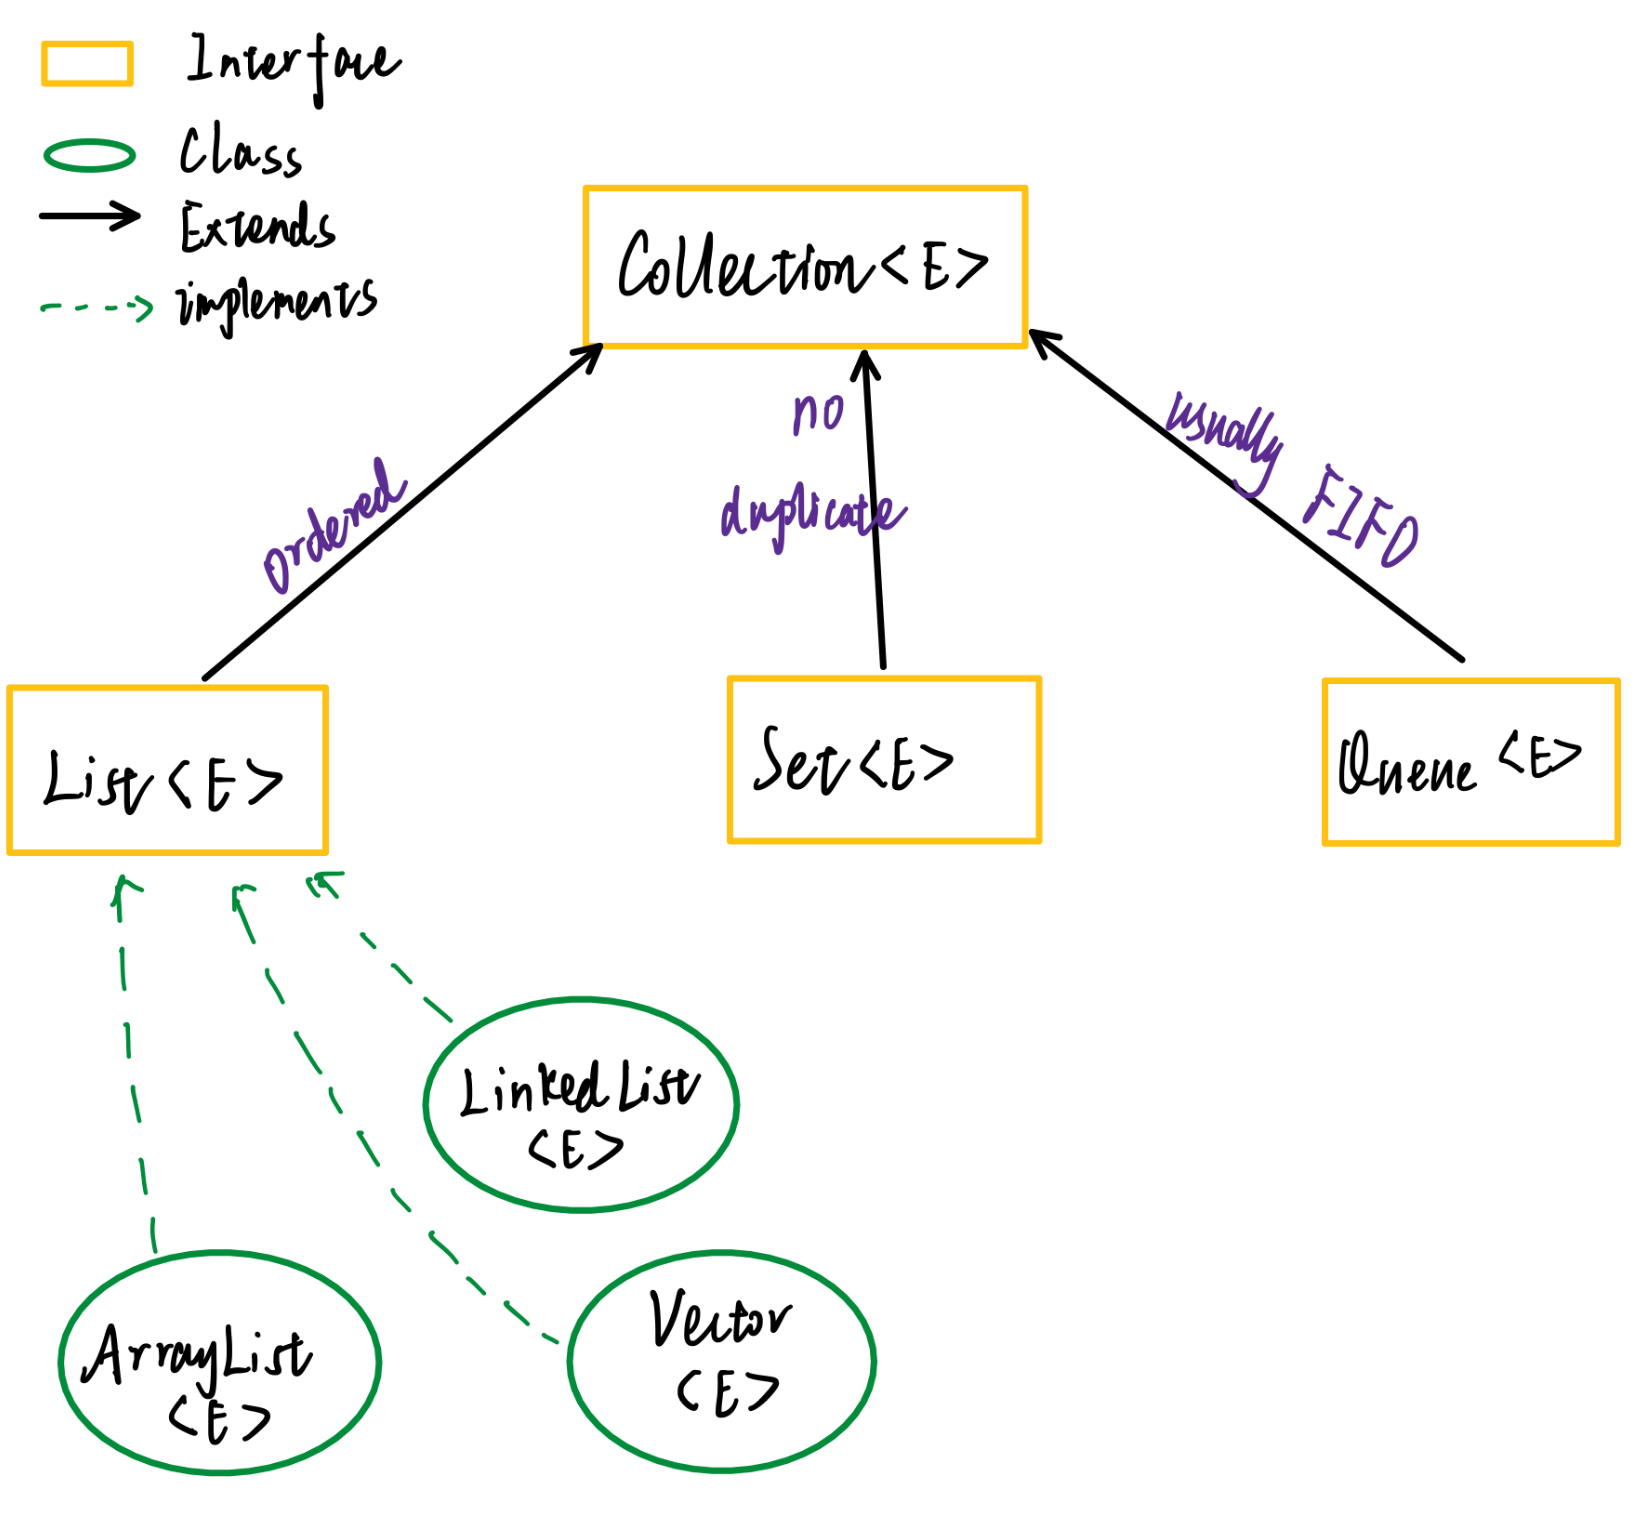 Interface
Class
Extends
implements
Collection<E>
no
duplicate
usually FIFO
ordered
List<E>
Set<E>
Queue <E>
LinkedList
<E>
ArrayList
<E>
Vector
<E>